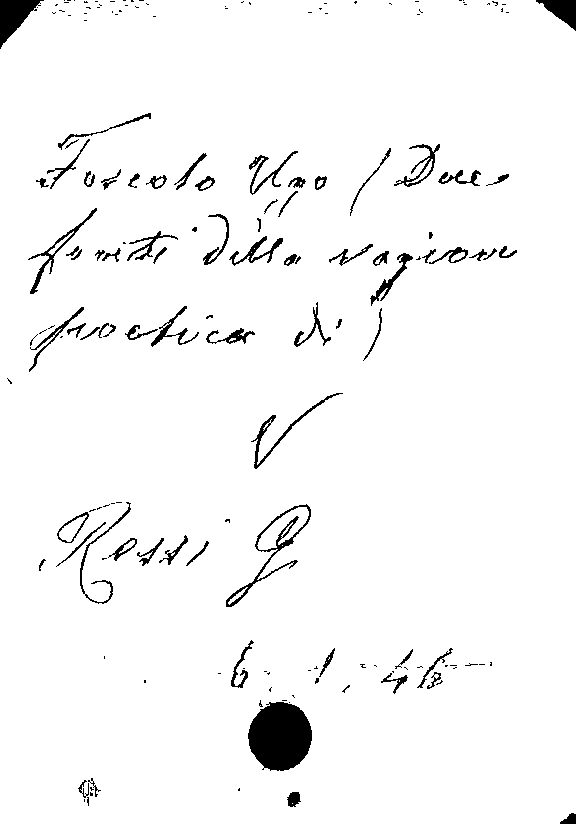 Foscolo Ugo (Due
fonti della ragione
poetica di)
V
Rossi G
6. 1. 46